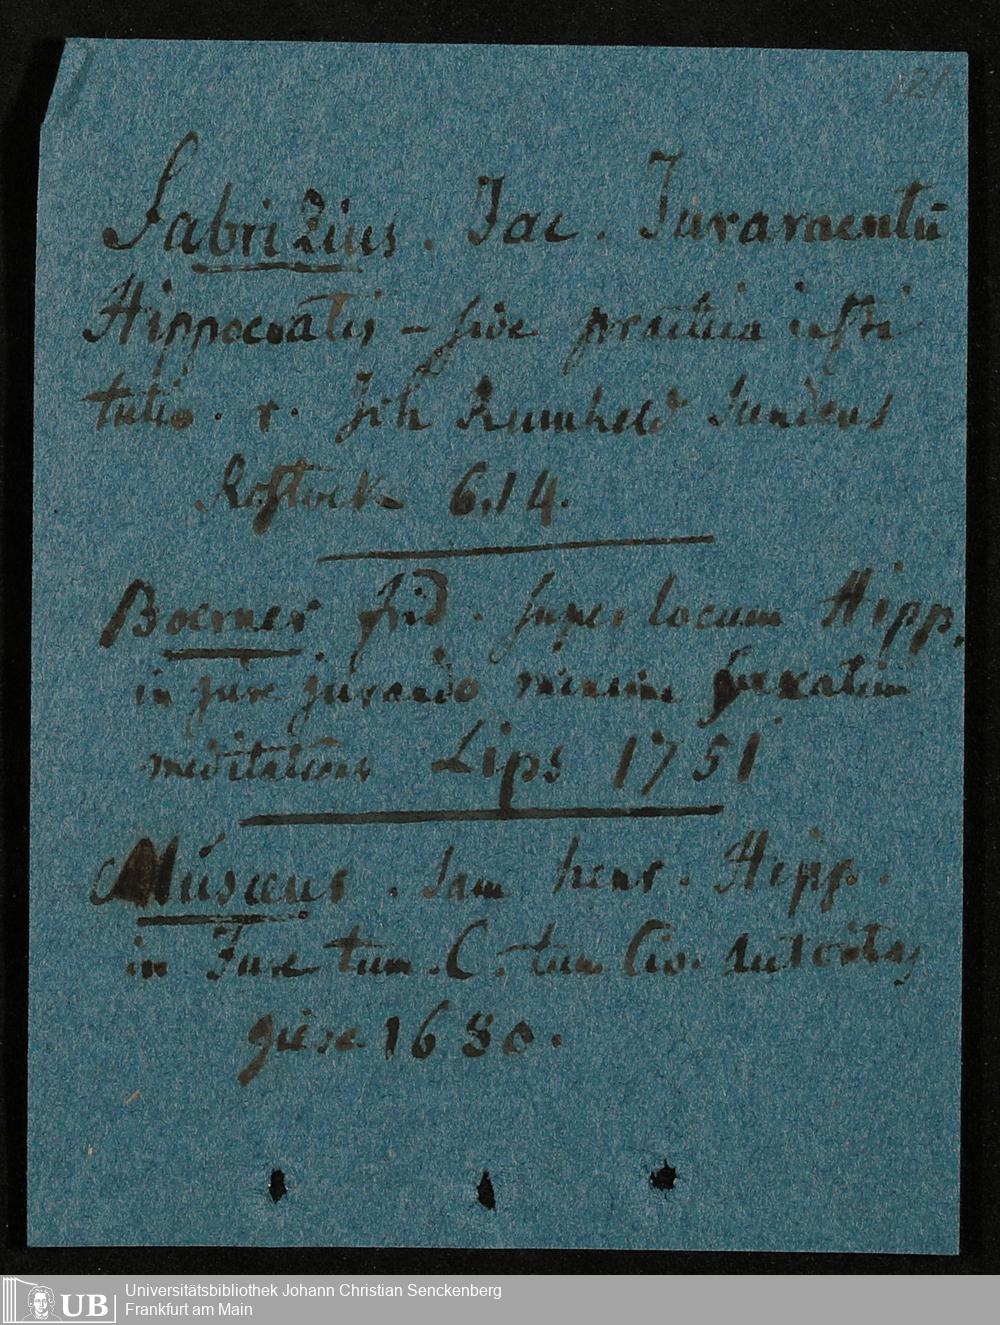 121
Fabrizius. Jac. Juramentū
Hippocratis – sive practica insti
tutio. r. Joh Rumheld Sundens
Rostock 614.
Boerner frid. super locum Hipp.
in jure jurando
meditationes Lips 1751
Musaeus. Sam henr. Hipp.
in Jure tum. C. tum Civ. Autoritas
giese 1680.
UB
Universitätsbibliothek Johann Christian Senckenberg
Frankfurt am Main